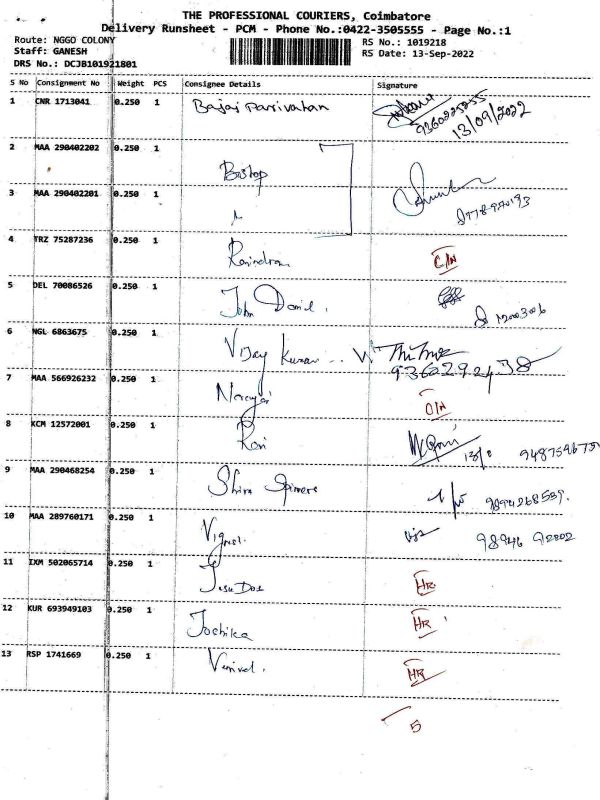 THE PROFESSIONAL COURIERS, Coimbatore
Delivery Runsheet - PCM - Phone No.:0422-3505555 - Page No.:1
Route: NGGO COLONY RS No.: 1019218
Staff: GANESH RS Date: 13-Sep-2022
DRS No.: DCJB101921801
S No Consignment No Weight PCS Consignee Details Signature
1 CNR 1713041 0.250 1 Bajaj Parivahan
9360225255
13/09/2022
2 MAA 290402202 0.250 1 Bishop
3 MAA 290402201 0.250 1
4 TRZ 75287236 0.250 1 Ravindran C/N
5 DEL 70086526 0.250 1 John Daniel.
6 NGL 6863675 0.250 1 Vijay Kumar
9360292438
7 MAA 566926232 0.250 1 Narayai O/N
8 KCM 12572001 0.250 1 Ravi
9 MAA 290468254 0.250 1 Shiva
9894268559.
10 MAA 289760171 0.250 1 Vignesh.
98946 92802
11 IXM 502065714 0.250 1 Jesu Dos HR
12 KUR 693949103 0.250 1 Joshika HR
13 RSP 1741669 0.250 1 HR
5